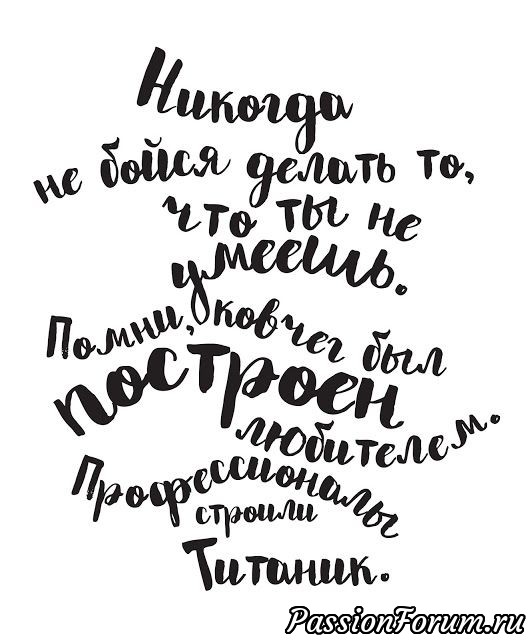 Никогда
не бойся делать то,
что ты не
умеешь.
Помни, ковчег был
построен
любителем.
Профессионалы
строили
Титаник.
PassionForum.ru